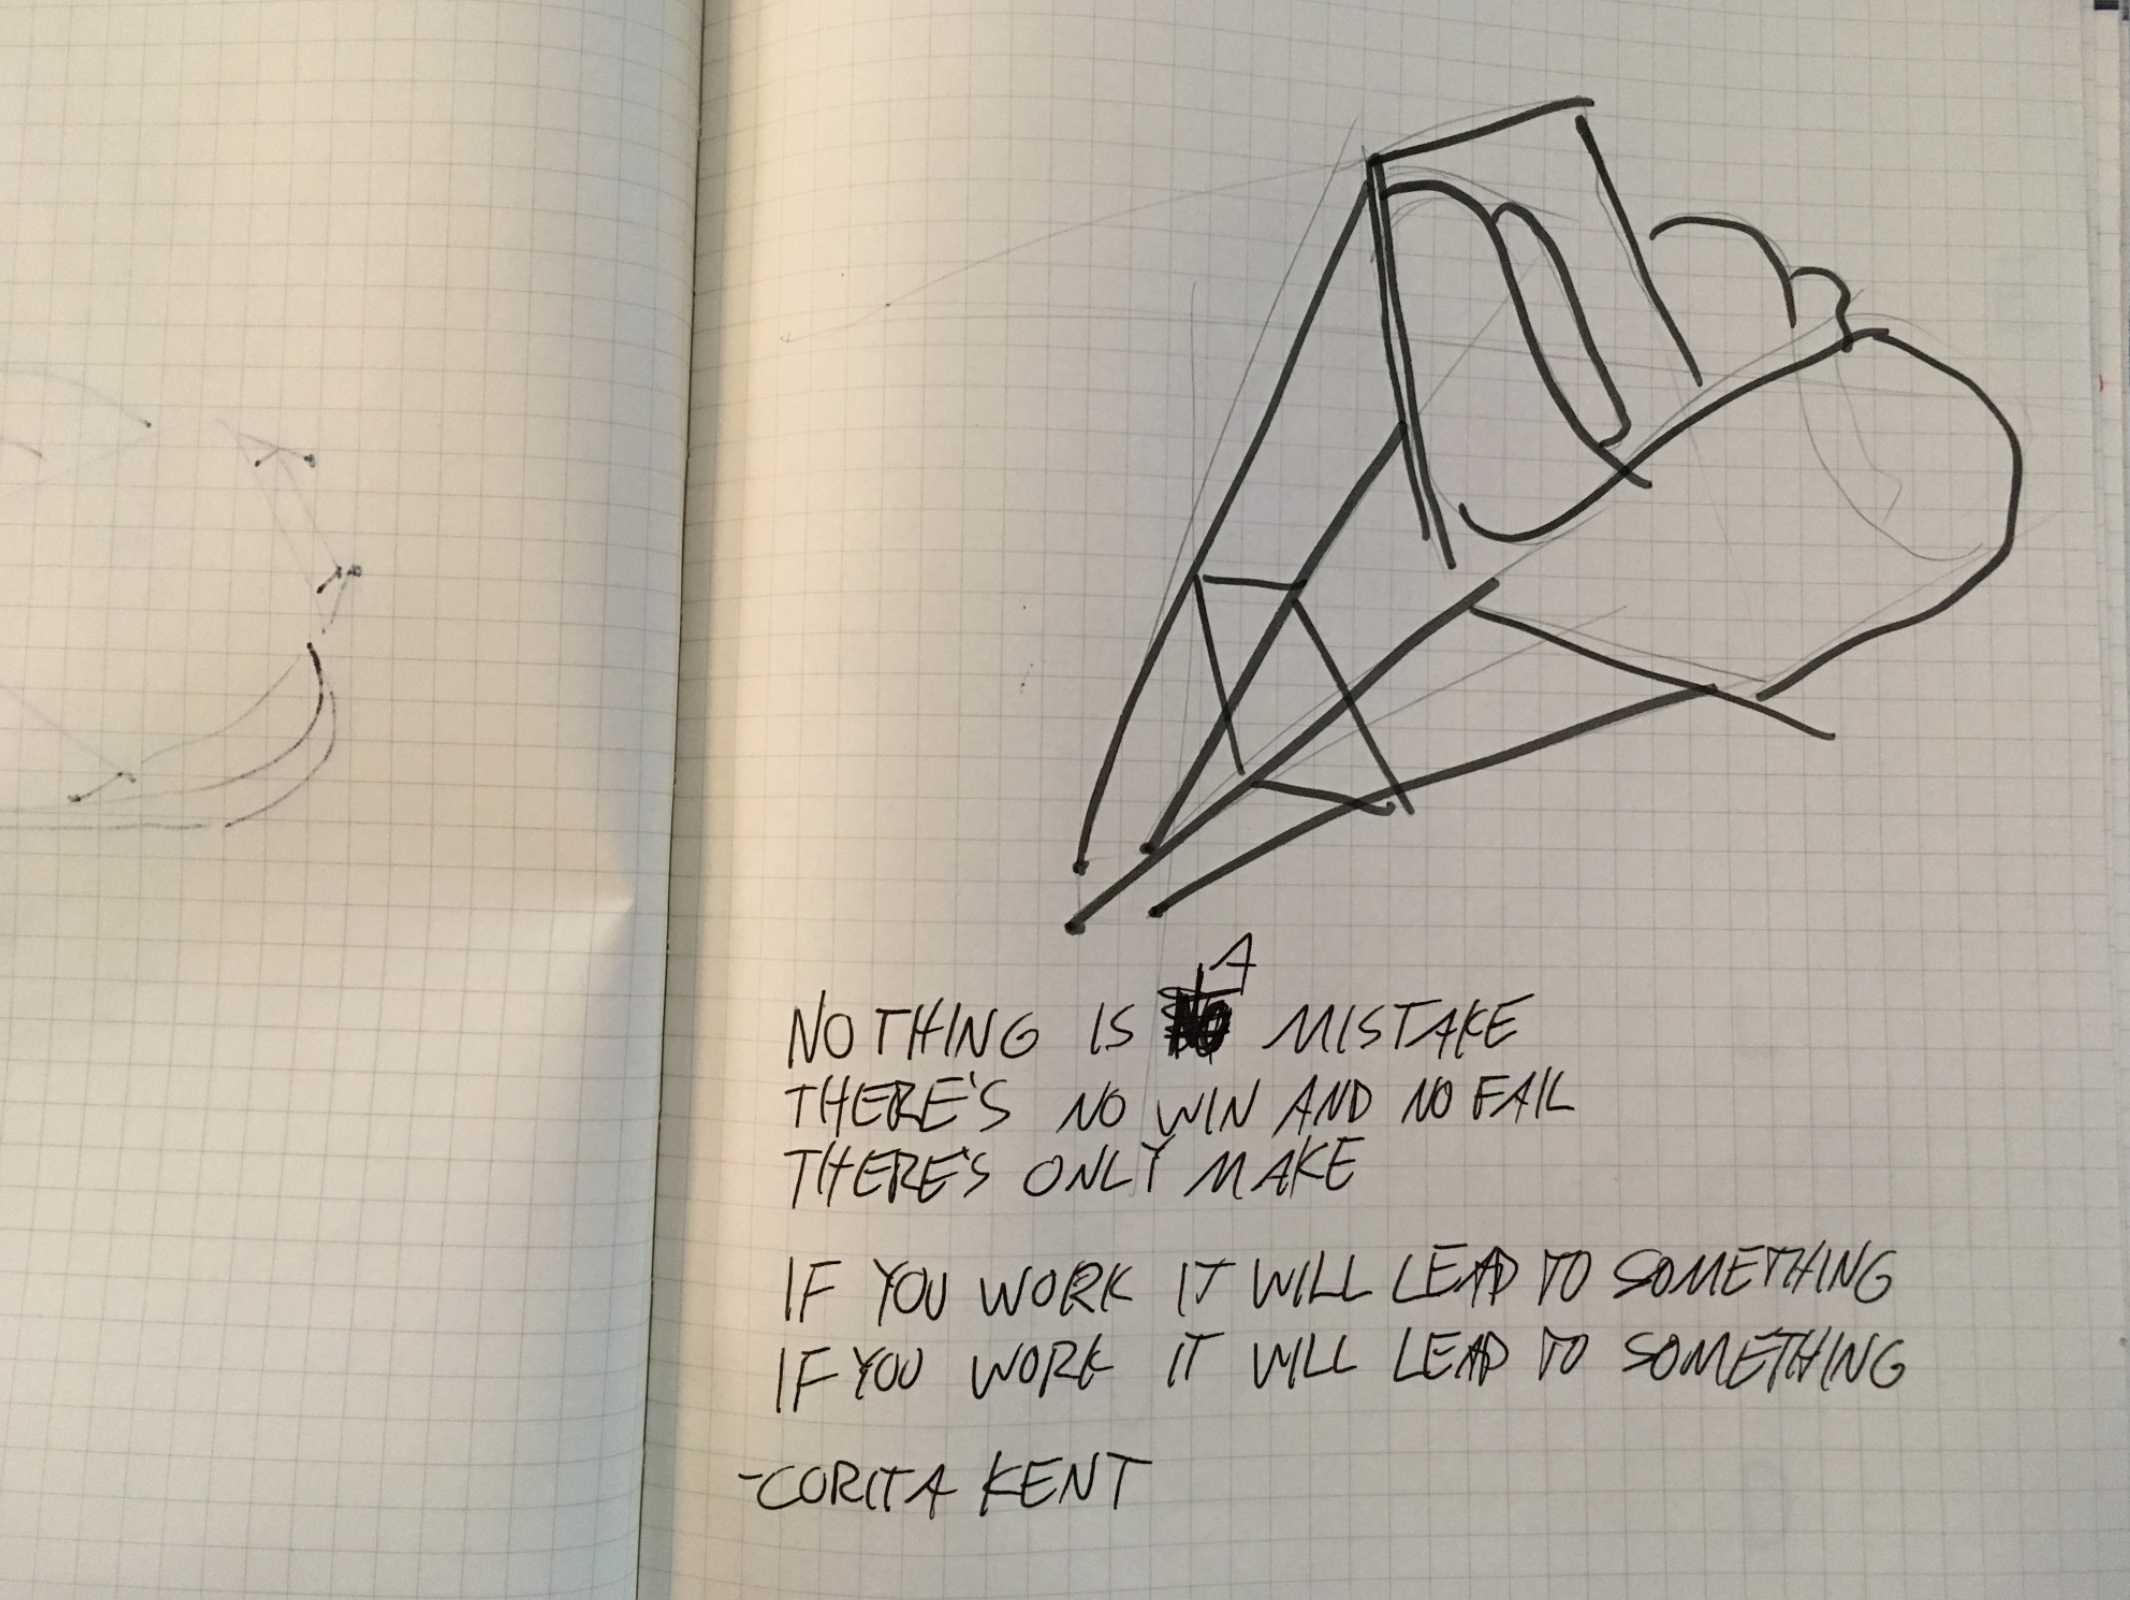 NOTHING IS A MISTAKE
THERE'S NO WIN AND NO FAIL
THERE'S ONLY MAKE
IF YOU WORK IT WILL LEAD TO SOMETHING
IF YOU WORK IT WILL LEAD TO SOMETHING
-CORITA KENT